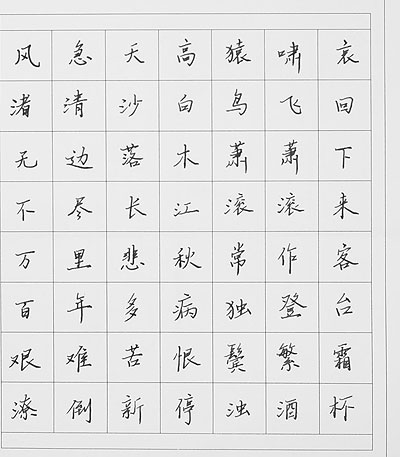 风急天高猿啸哀
渚清沙白鸟飞回
无边落木萧萧下
不尽长江滚滚来
万里悲秋常作客
百年多病独登台
艰难苦恨鬓繁霜
潦倒新停浊酒杯